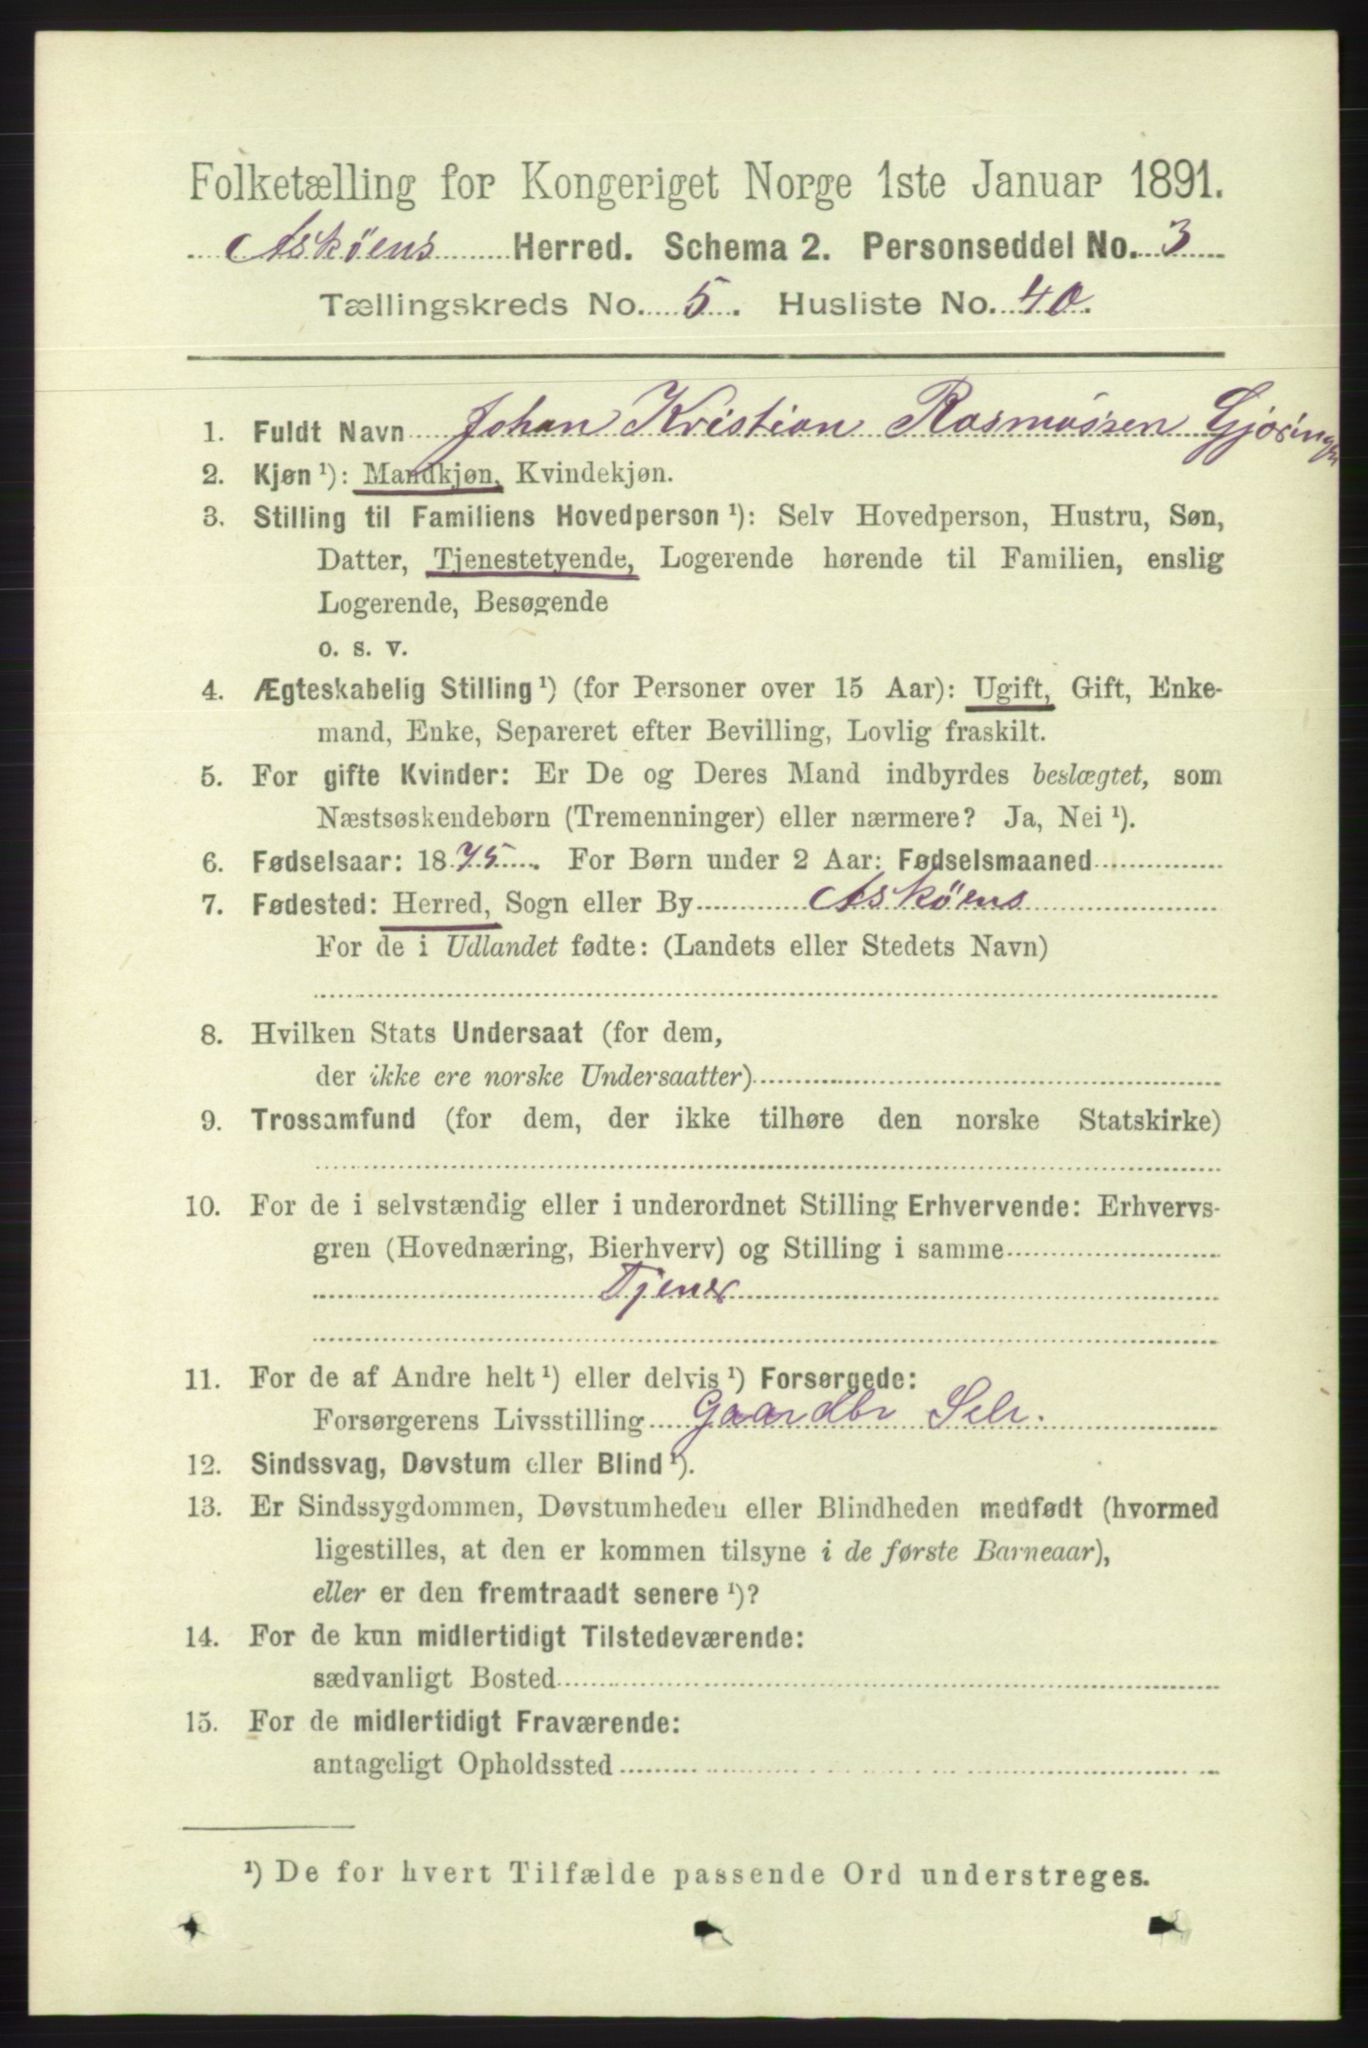 Folketælling for Kongeriget Norge 1ste Januar 1891.
Askøens Herred. Schema 2. Personseddel No. 3
Tællingskreds No. 5. Husliste No. 40.
1. Fuldt Navn Johan Kristian Rasmussen
2. Kjøn ¹): Mandkjøn, Kvindekjøn.
3. Stilling til Familiens Hovedperson ¹): Selv Hovedperson, Hustru, Søn,
Datter, Tjenestetyende, Logerende hørende til Familien, enslig
Logerende, Besøgende
o. s. v.
4. Ægteskabelig Stilling ¹) (for Personer over 15 Aar): Ugift, Gift, Enke-
mand, Enke, Separeret efter Bevilling, Lovlig fraskilt.
5. For gifte Kvinder: Er De og Deres Mand indbyrdes beslægtet, som
Næstsøskendebørn (Tremenninger) eller nærmere? Ja, Nei ¹).
6. Fødselsaar: 1875. For Børn under 2 Aar: Fødselsmaaned
7. Fødested: Herred, Sogn eller By Askøens
For de i Udlandet fødte: (Landets eller Stedets Navn)
8. Hvilken Stats Undersaat (for dem,
der ikke ere norske Undersaatter)
9. Trossamfund (for dem, der ikke tilhøre den norske Statskirke)
10. For de i selvstændig eller i underordnet Stilling Erhvervende: Erhvervs-
gren (Hovednæring, Bierhverv) og Stilling i samme
Tjener
11. For de af Andre helt ¹) eller delvis ¹) Forsørgede:
Forsørgerens Livsstilling Gaardbr Selv.
12. Sindssvag, Døvstum eller Blind ¹).
13. Er Sindssygdommen, Døvstumheden eller Blindheden medfødt (hvormed
ligestilles, at den er kommen tilsyne i de første Barneaar),
eller er den fremtraadt senere ¹)?
14. For de kun midlertidigt Tilstedeværende:
sædvanligt Bosted
15. For de midlertidigt Fraværende:
antageligt Opholdssted
¹) De for hvert Tilfælde passende Ord understreges.